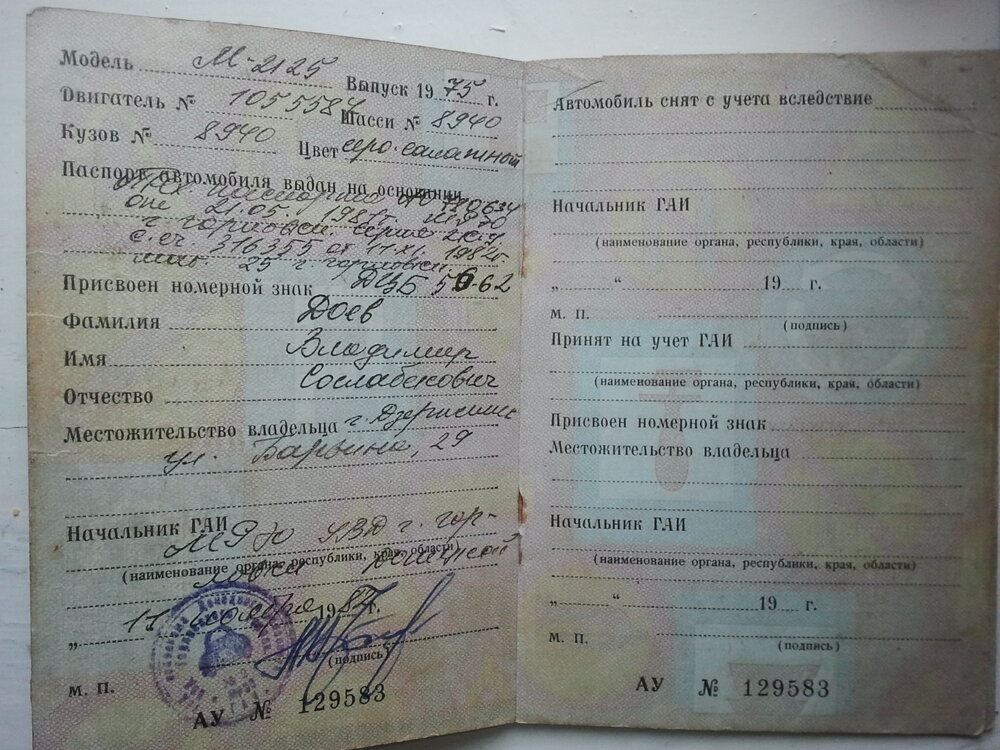 Модель М-2125 Выпуск 1975 г.
Двигатель № 1055584 Шасси № 8940
Кузов № 8940 Цвет серо-салатный
Паспорт автомобиля выдан на основании
21.05. 1981г.
г. Горловки. серия
с.сч. 316355 от 11.XI. 198
25 г. Горловки
Присвоен номерной знак ДЦБ 59-62
Фамилия Доев
Имя Владимир
Отчество Сосланбекович
Местожительство владельца г. Дзержинск
ул. 29
Начальник ГАИ МРЭО УВД г. Гор-
(наименование органа, республики, края, области)
ловка
„ 11 ноября 1987 г.
(подпись)
М. П.
АУ № 129583
Автомобиль снят с учета вследствие
Начальник ГАИ
(наименование органа, республики, края, области)
„ “ 19 г.
М. П.
(подпись)
Принят на учет ГАИ
(наименование органа, республики, края, области)
Присвоен номерной знак
Местожительство владельца
Начальник ГАИ
(наименование органа, республики, края, области)
„ “ 19 г.
М. П.
(подпись)
АУ № 129583